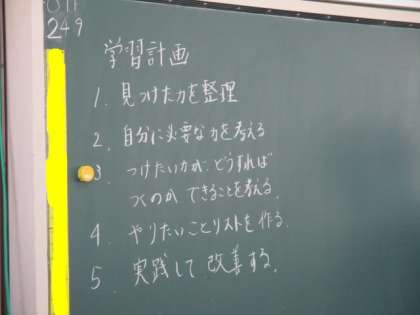 249
学習計画
1. 見つけた力を整理
2. 自分に必要な力を考える
3. つけたい力が、どうすれば
つくのか できることを考える.
4. やりたいことリストを作る.
5. 実践して改善する.